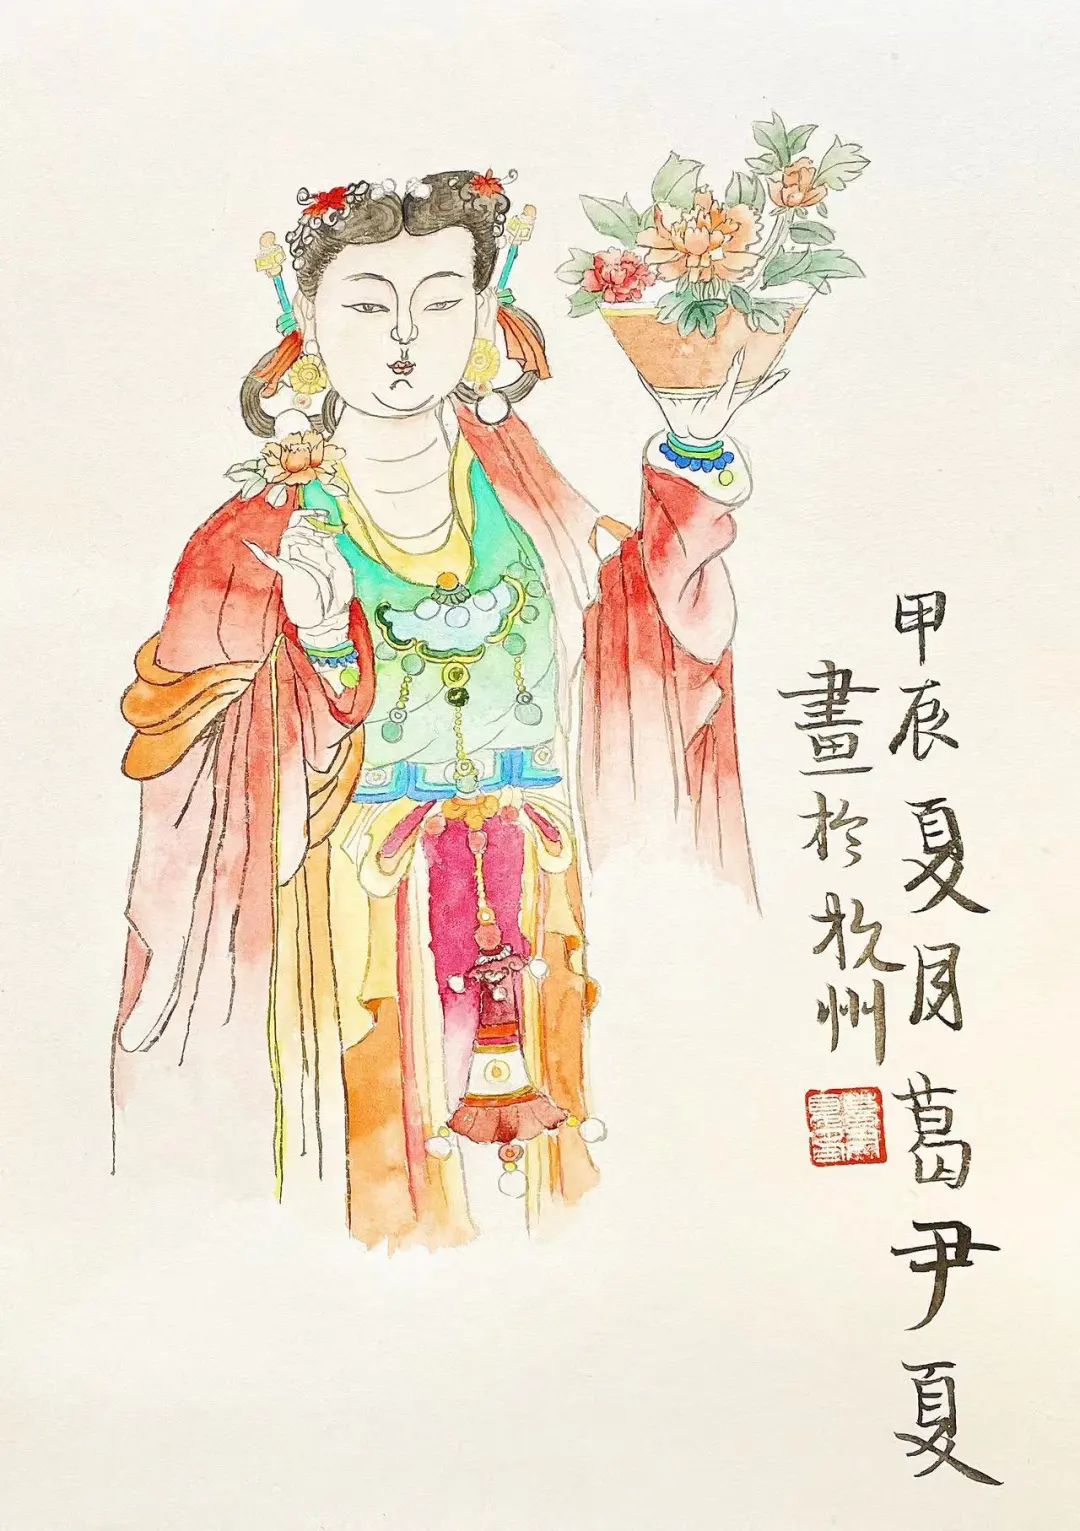 甲辰夏月葛尹夏
畫於杭州